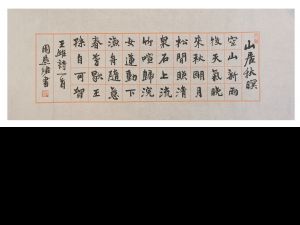 山居秋暝
空山新雨
後天氣晚
來秋明月
松間照清
泉石上流
竹喧歸浣
女蓮動下
漁舟隨意
春芳歇王
孫自可留
王維詩一首
周 書